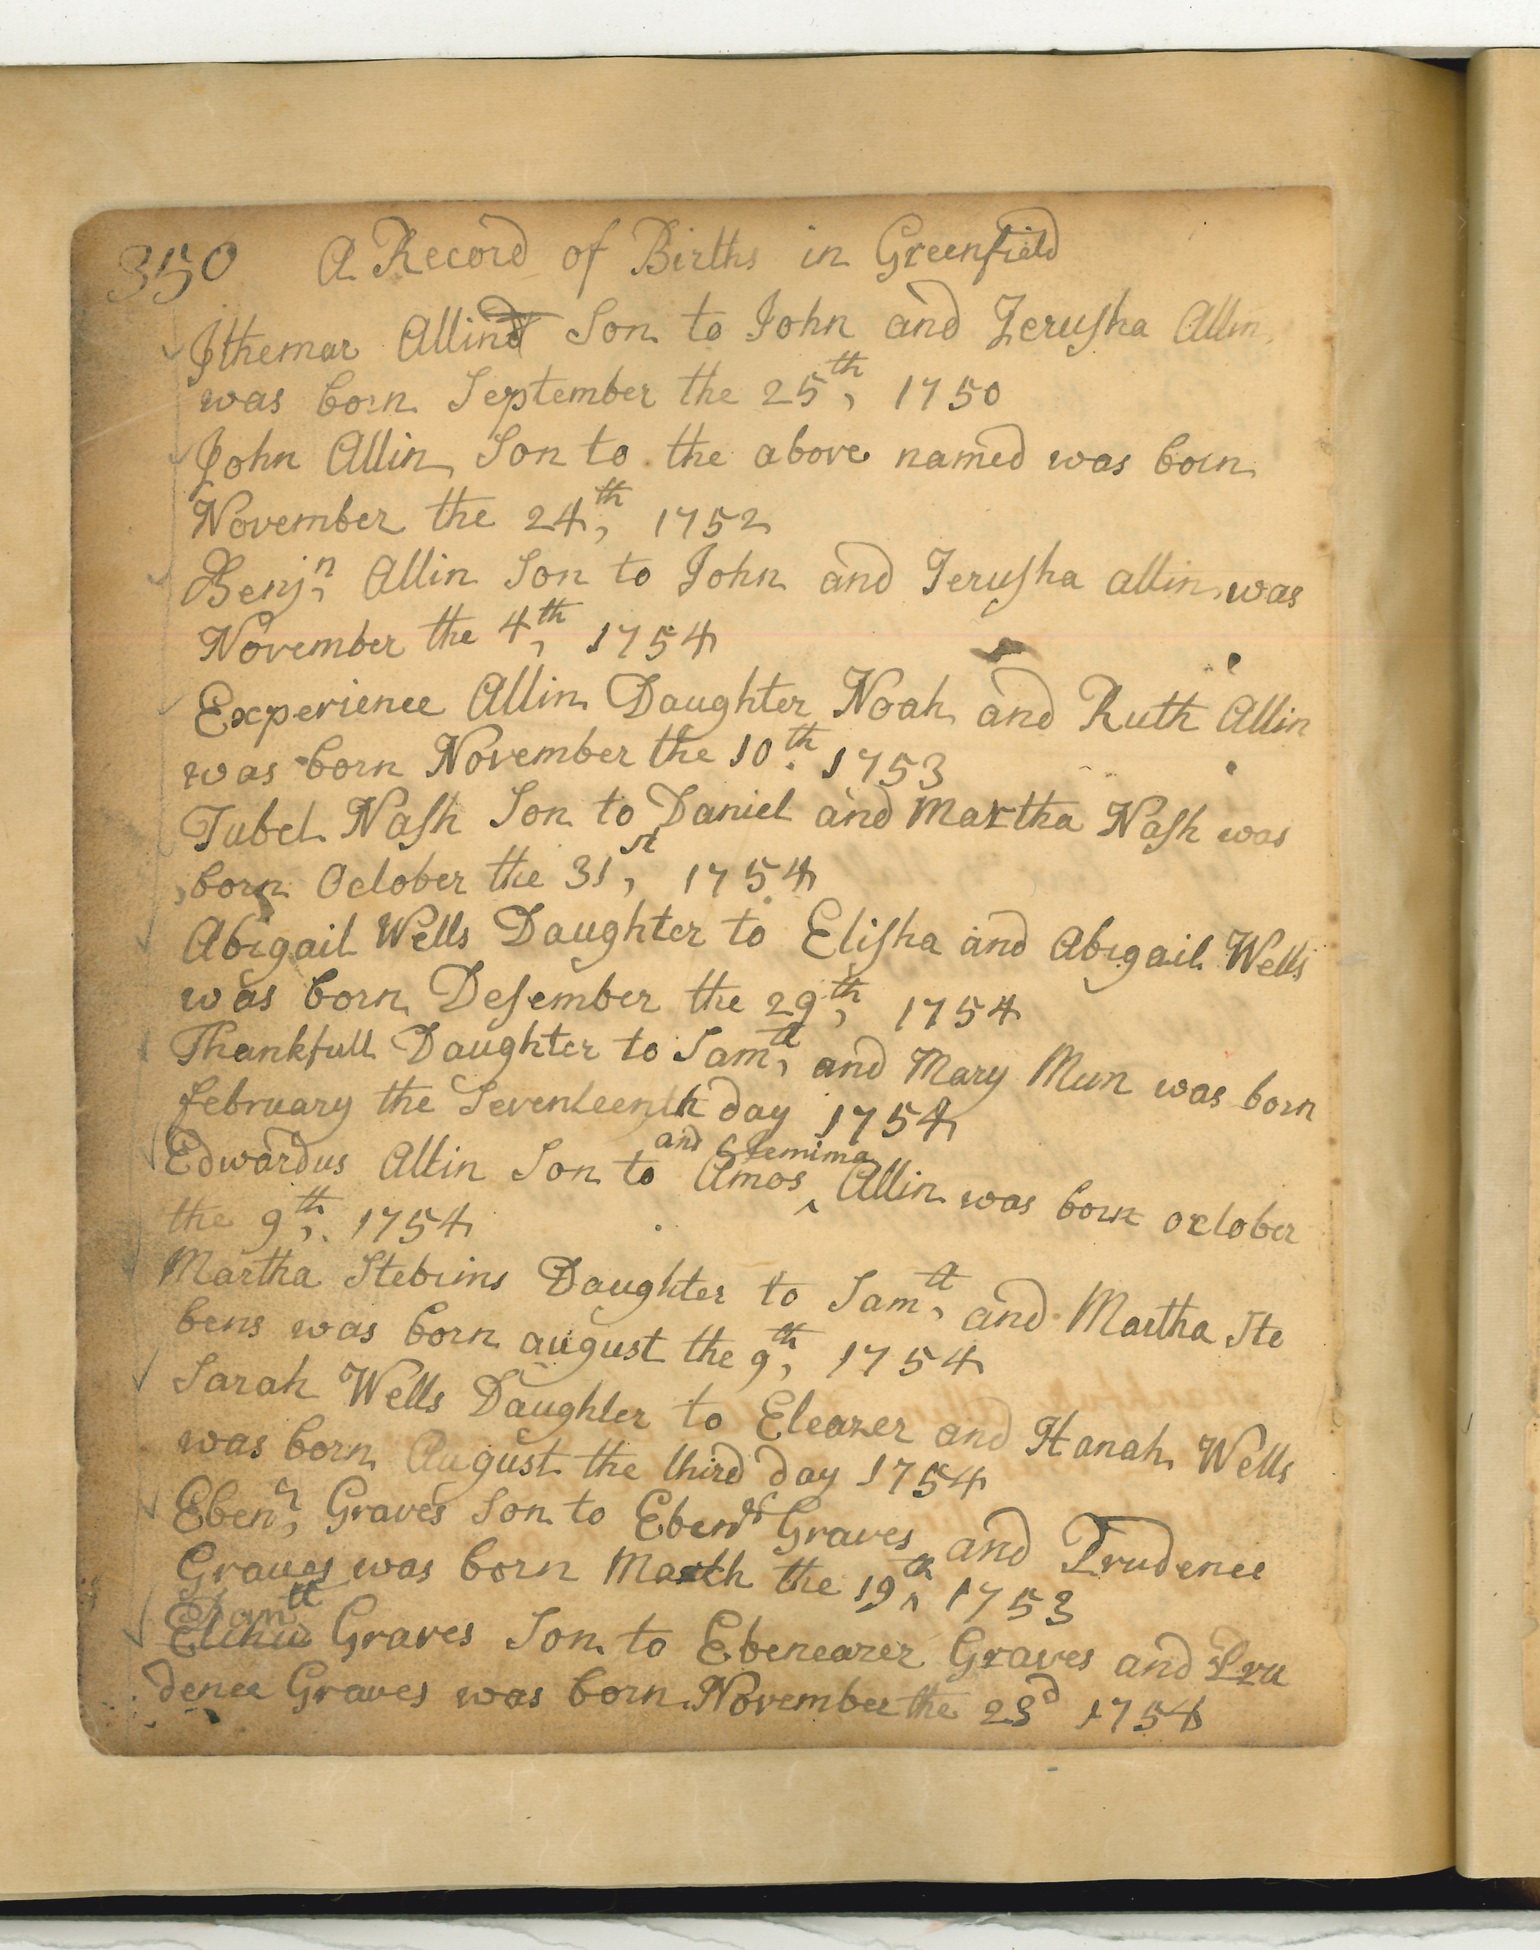 350 A Record of Births in Greenfield
Ithemar Allin Son to John and Jerusha Allin
was born September the 25th, 1750
John Allin Son to the above named was born
November the 24th, 1752
Benjn, Allin Son to John and Jerusha allin was
November the 4th, 1754
Experience Allin Daughter Noah and Ruth Allin
was born November the 10th. 1753
Tubel Nash Son to Daniel and Martha Nash was
born October the 31st, 1754
Abigail Wells Daughter to Elisha and Abigail Wells
was born Desember the 29th, 1754
Thankfull Daughter to Samll, and Mary Mun was born
february the Seventeenth day 1754
Edwardus Allin Son to Amos and Jemima Allin was born october
the 9th, 1754
Martha Stebins Daughter to Samll, and Martha Ste
bens was born august the 9th, 1754
Sarah Wells Daughter to Eleazer and Hanah Wells
was born August the third day 1754
Ebenr, Graves Son to Ebenr Graves and Prudence
Graves was born March the 19th 1753
Elihu Graves Son to Ebenearzer Graves and Pru
dence Graves was born November the 23d 1754